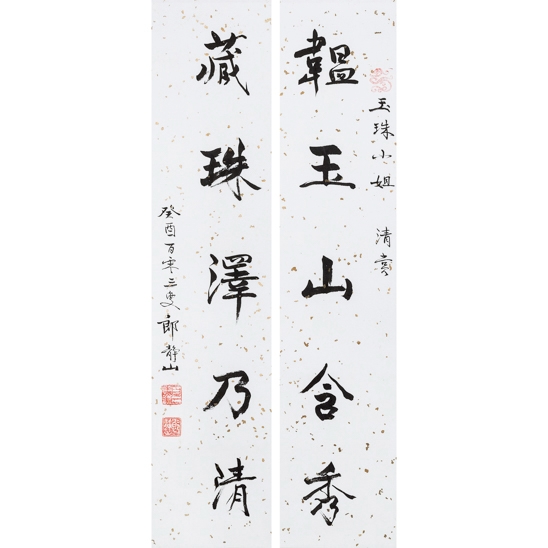 玉珠小姐 清賞
韞玉山含秀
藏珠澤乃清
癸酉百零三叟郎靜山